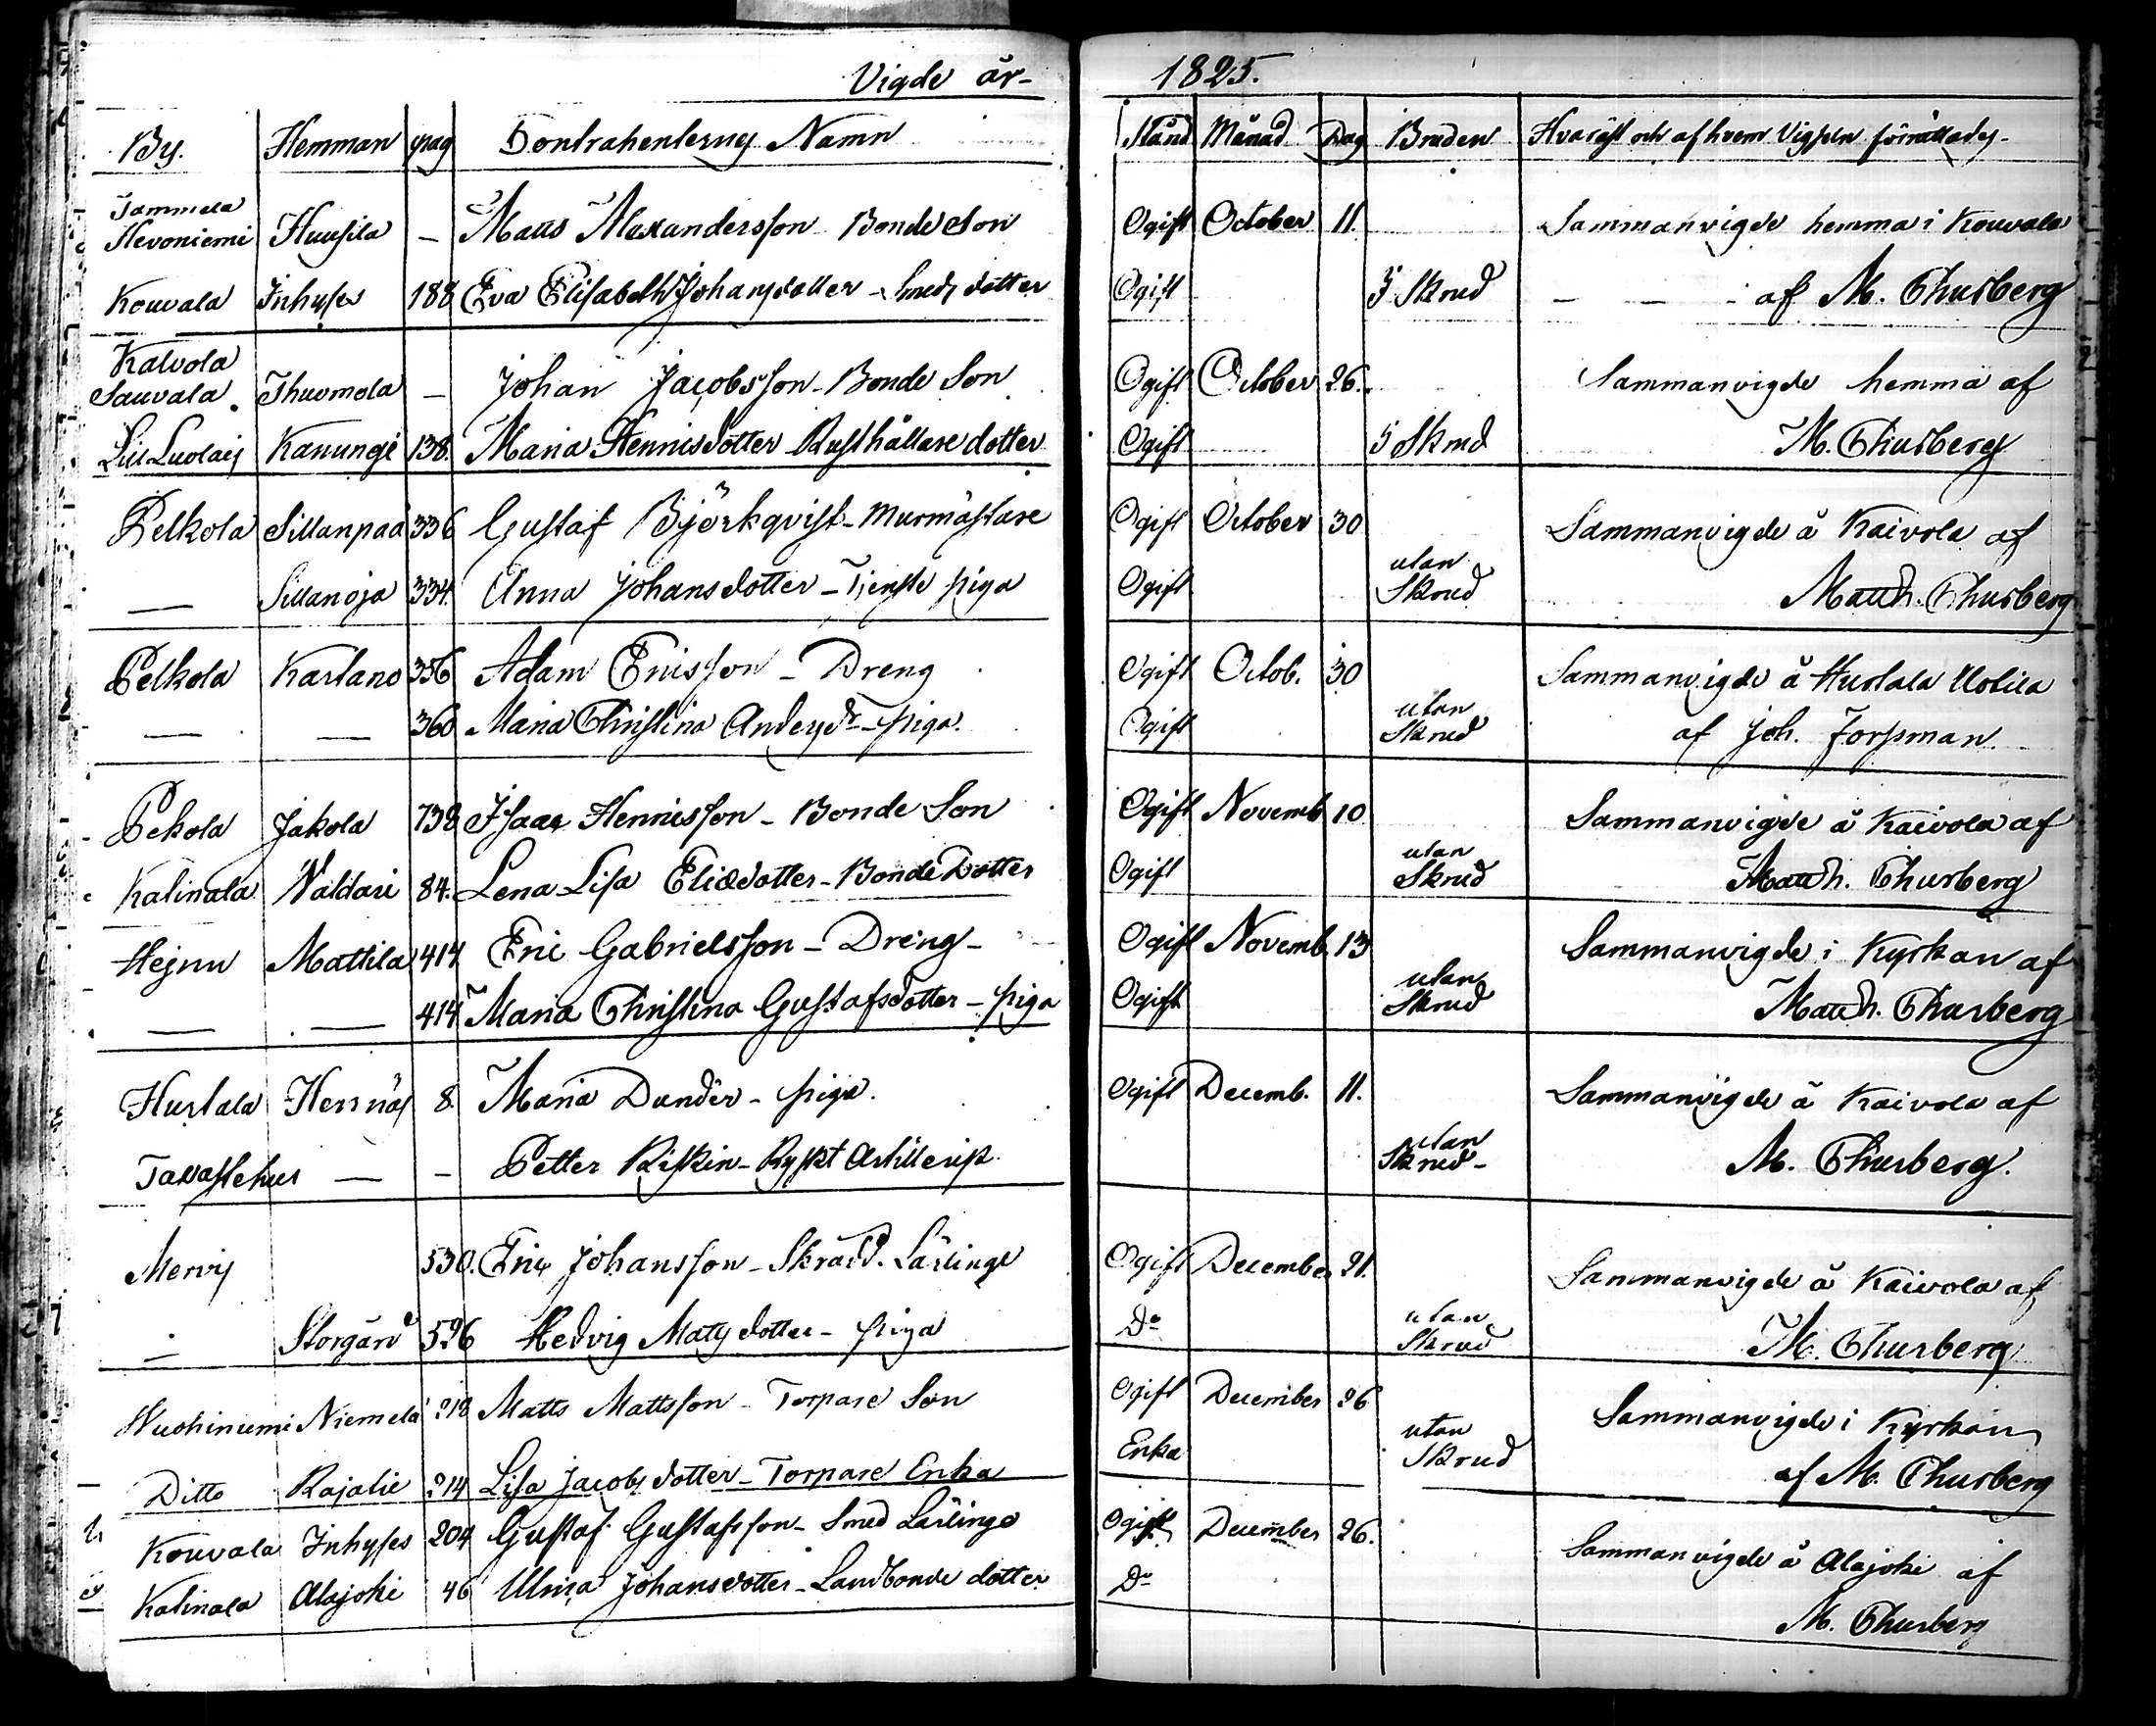 Vigde år 1825.
By. Hemman pag Contrahenternes Namn Stånd Månad Dag Bruden Hvaräst och af hvem Vigseln förrättades
Jammela
Hevoniemi Huusila — Matts Alexandersson Bonde Son Ogift October 11. Sammanvigde hemma i Kouvala
Kouvala Inhyses 188 Eva Elisabeth Johansdotter - Smeds dotter Ogift i Skrud — — af M. Churberg
Kalvola
Sauvala Thuomola — Johan Jacobsson - Bonde Son Ogift October 26. Sammanvigde hemma af
Lill Luolais Kanungi 138. Maria Henricsdotter Rusthållare dotter Ogift i Skrud M. Churberg
Pelkola Sillanpää 336 Gustaf Björkqvist - Murmästare Ogift October 30 Sammanvigde å Kaivola af
— Sillanoja 334. Anna Johansdotter - Tjenste piga Ogift utan Skrud Matth. Churberg
Pelkola Karlano 356 Adam Ericsson - Dreng Ogift Octob. 30 Sammanvigde å Hurtala Uotila
— — 360 Maria Christina Andersdr - piga. Ogift utan Skrud af Joh. Forssman
Pekola Jakola 738 Isaac Henricsson - Bonde Son Ogift Novemb. 10 Sammanvigde å Kaivola af
Katinala Valdari 84. Lena Lisa Eliædotter - Bonde Dotter Ogift utan Skrud Matth. Churberg
Hejnu Mattila 414 Eric Gabrielsson - Dreng - Ogift Novemb. 13 Sammanvigde i Kyrkan af
— — 414 Maria Christina Gustafsdotter - piga Ogift utan Skrud Matth. Churberg
Hurtala Herrnäs 8. Maria Dunder - piga. Ogift Decemb. 11. Sammanvigde å Kaivola af
Tavastehus — — Petter Riskin - Ryskt Artillerist utan Skrud - M. Churberg.
Mervis 530. Eric Johansson - Skrädd. Lärlinge Ogift December 21. Sammanvigde å Kaivola af
— Storgård 526 Hedvig Matsdotter - piga Do utan Skrud M. Churberg
Vuohiniemi Niemelä 218 Matts Mattsson - Torpare Son Ogift December 26 Sammanvigde i Kyrkan
Ditto Rajalie 214 Lisa Jacobsdotter - Torpare Enka Enka utan Skrud af M. Churberg
Kouvala Inhyses 204 Gustaf Gustafsson - Smed Lärlinge Ogift December 26. Sammanvigde å Alajoki af
Katinala Alajoki 46 Ulrica Johansdotter - Landbonde dotter Do M. Churberg